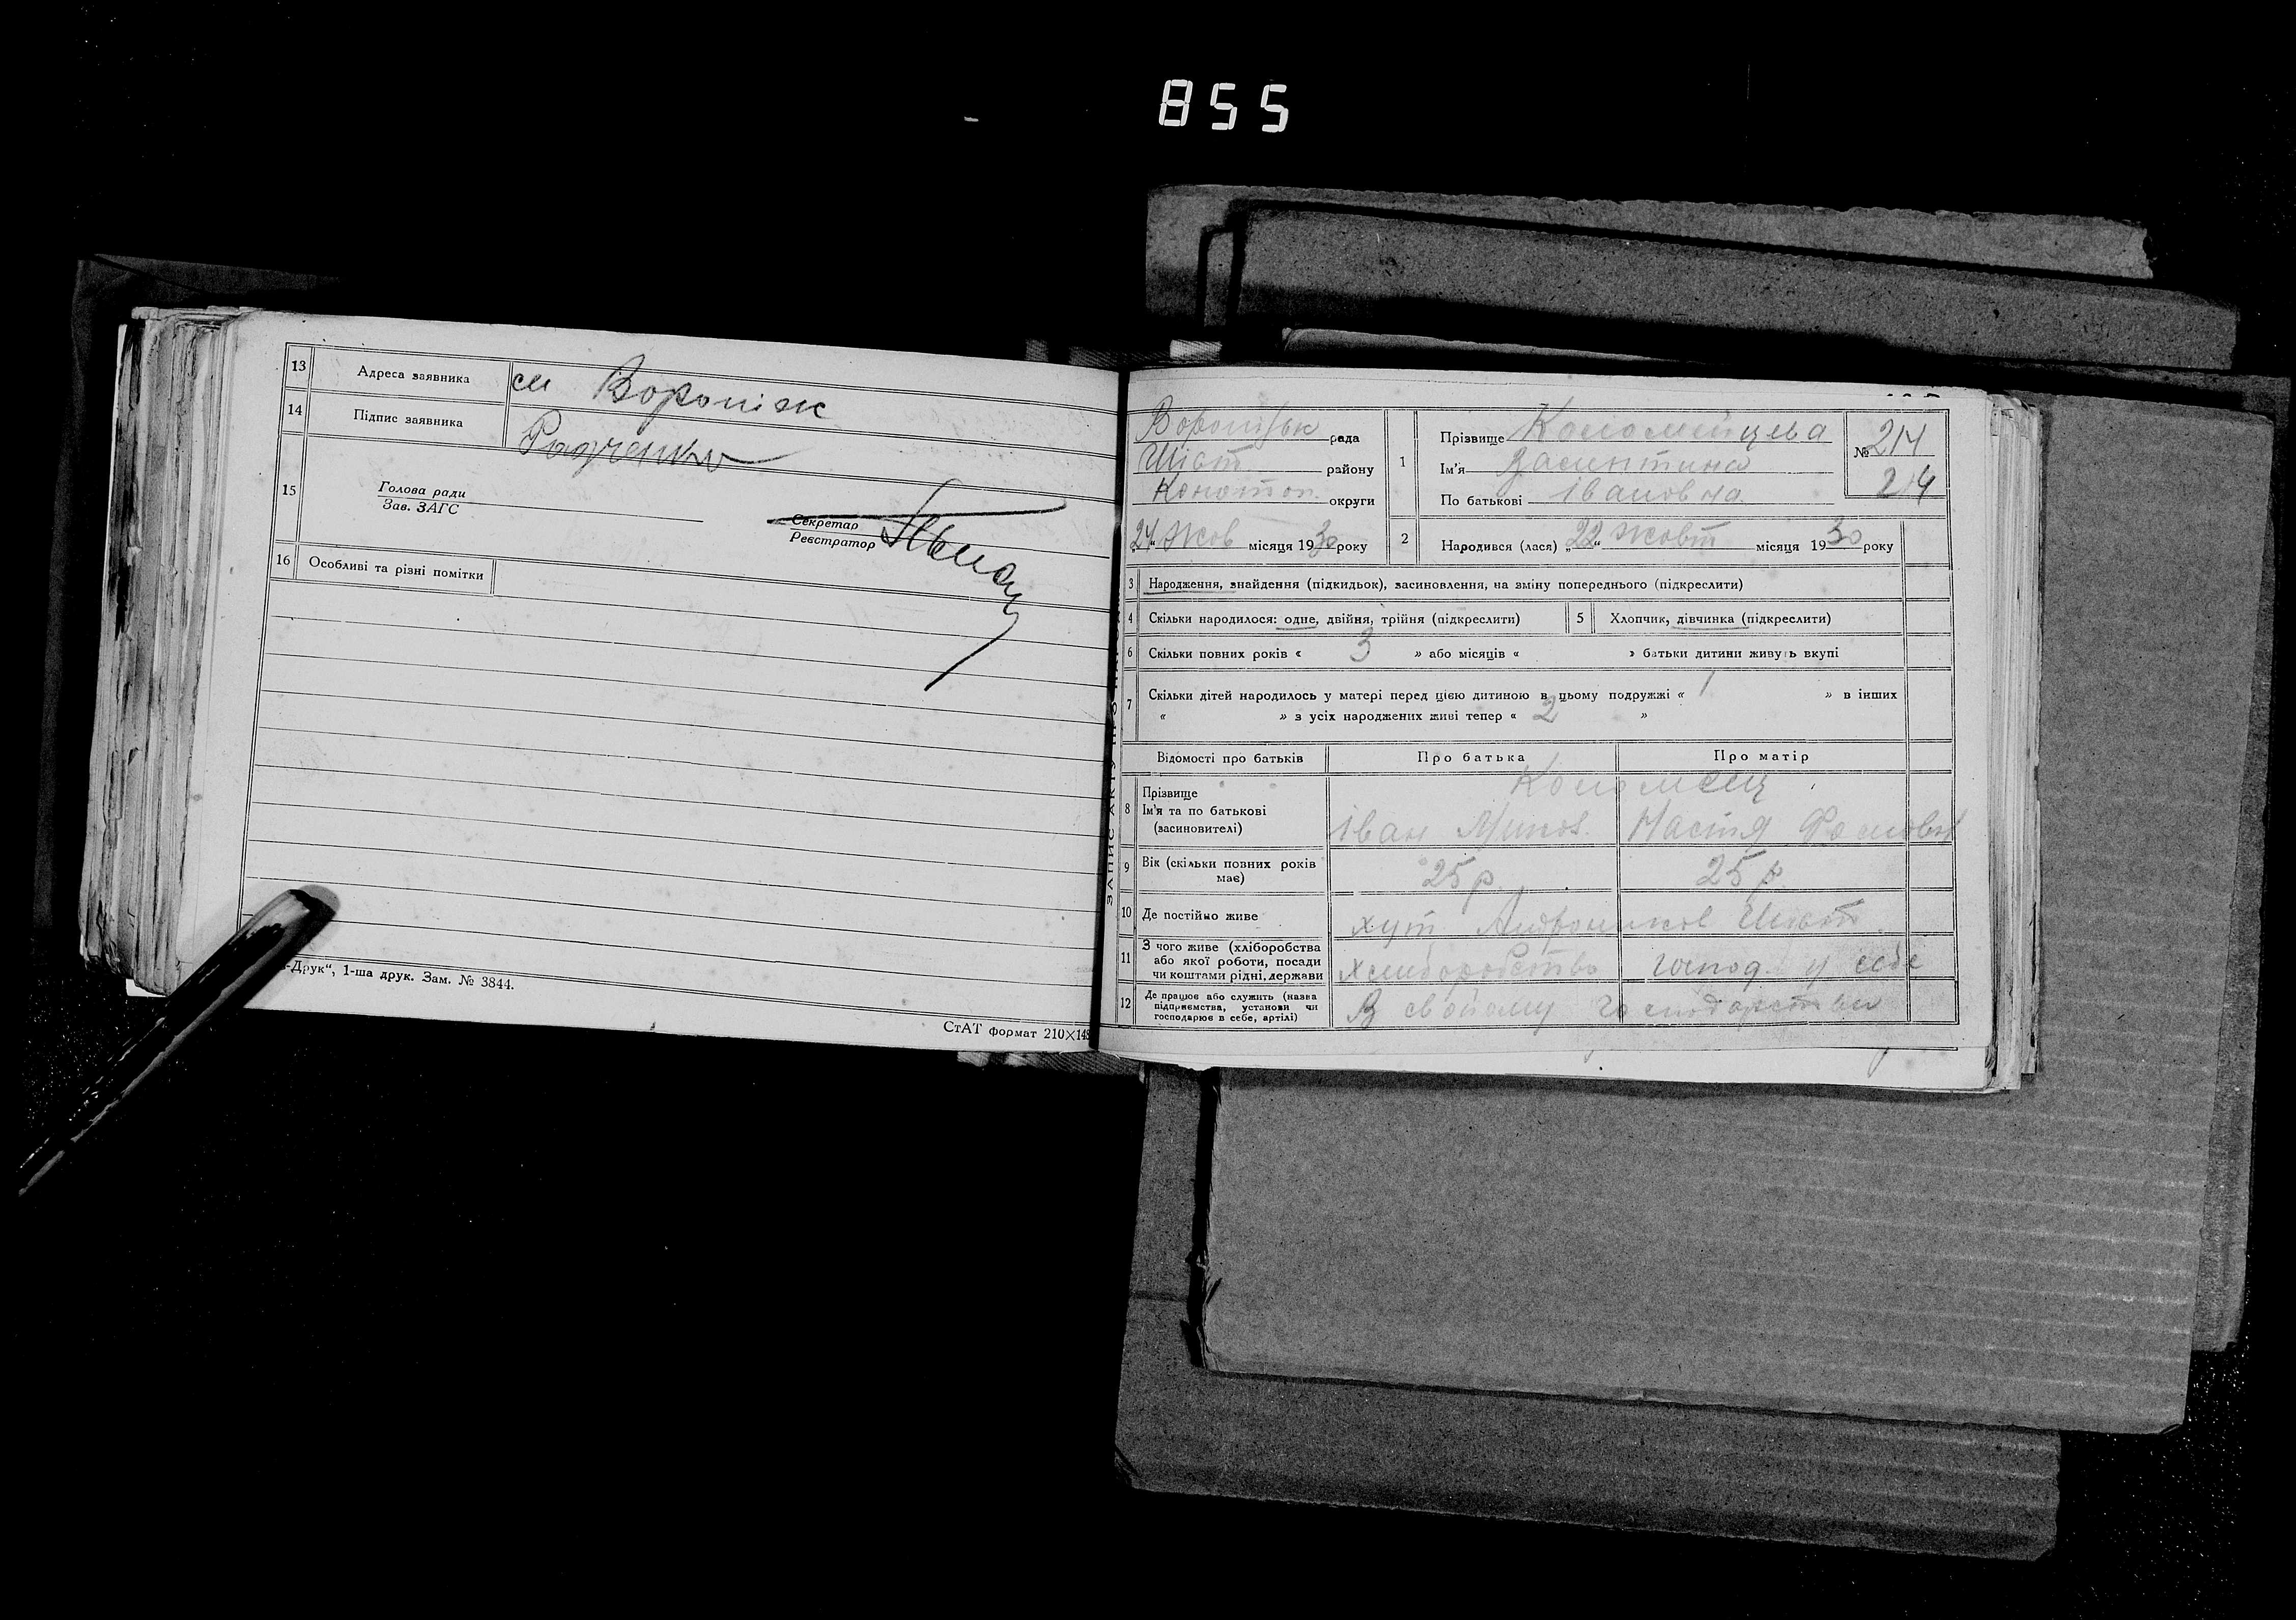 855
13 Адреса заявника см Вороніж
14 Підпис заявника Радченко
15 Голова ради
Зав. ЗАГС
Секретар
Реєстратор
16 Особливі та різні помітки
-Друк“, 1-ша друк. Зам. № 3844.
СтАТ формат 210×148
ЗАПИС АКТУ ПРО
Вороніжськ рада
Шост. району
Конотоп. округи
„24“ Жов місяця 1930 року
1 Прізвище Коломейцева
Ім'я Валентина
По батькові Івановна
№ 214
214
2 Народився (лася) „22“ Жовт місяця 1930 року
3 Народження, знайдення (підкидьок), засиновлення, на зміну попереднього (підкреслити)
4 Скільки народилося: одне, двійня, трійня (підкреслити)
5 Хлопчик, дівчинка (підкреслити)
6 Скільки повних років « 3 » або місяців « » батьки дитини живуть вкупі
7 Скільки дітей народилось у матері перед цією дитиною в цьому подружжі « 1 » в інших
« » з усіх народжених живі тепер « 2 »
Відомості про батьків Про батька Про матір
8 Прізвище Коломеец
Ім'я та по батькові
(засиновителі) Іван Настя
9 Вік (скільки повних років
має) 25 р. 25 р.
10 Де постійно живе хут Шост.
11 З чого живе (хліборобства
або якої роботи, посади
чи коштами рідні, держави хлиборобство господ. у себе
12 Де працює або служить (назва
підприємства, установи чи
господарює в себе, артілі) В своїому господарстви